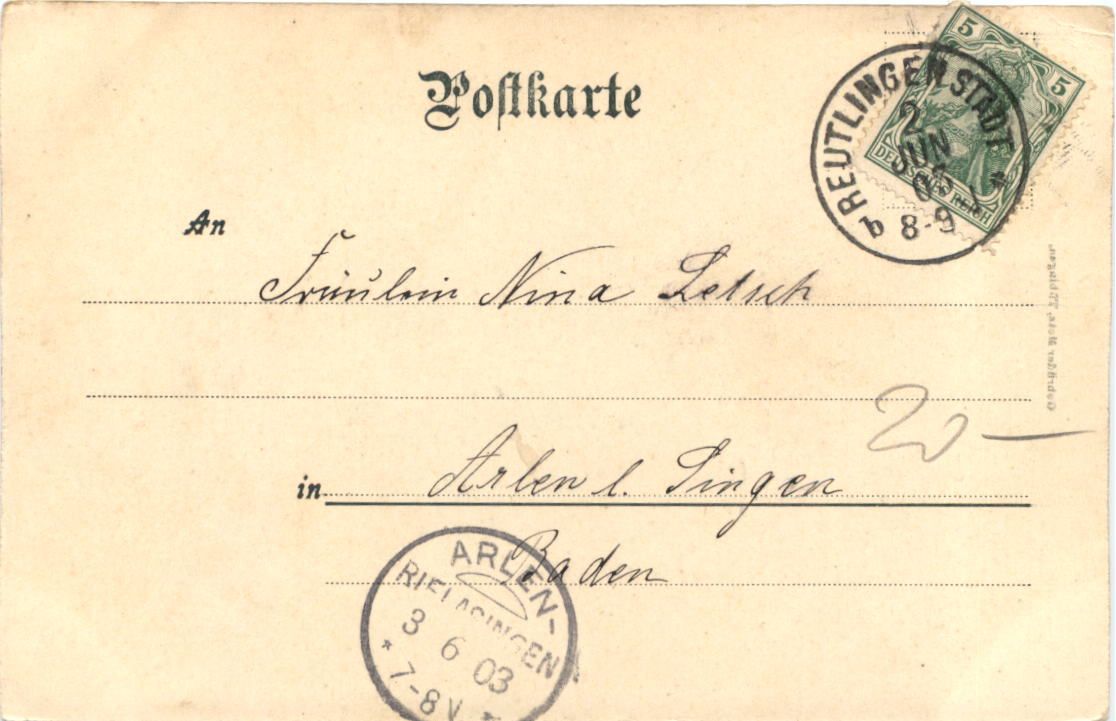 Postkarte
5 5
DEUTSCHES REICH
REUTLINGEN STADT
2
JUN
03
* b 8-9
An
Fräulein Nina Letsch
20 —
in Arlen b. Singen
Baden
ARLEN-
RIELASINGEN
3 6 03
* 7-8 V *
Gebrüder Metz, Tübingen.